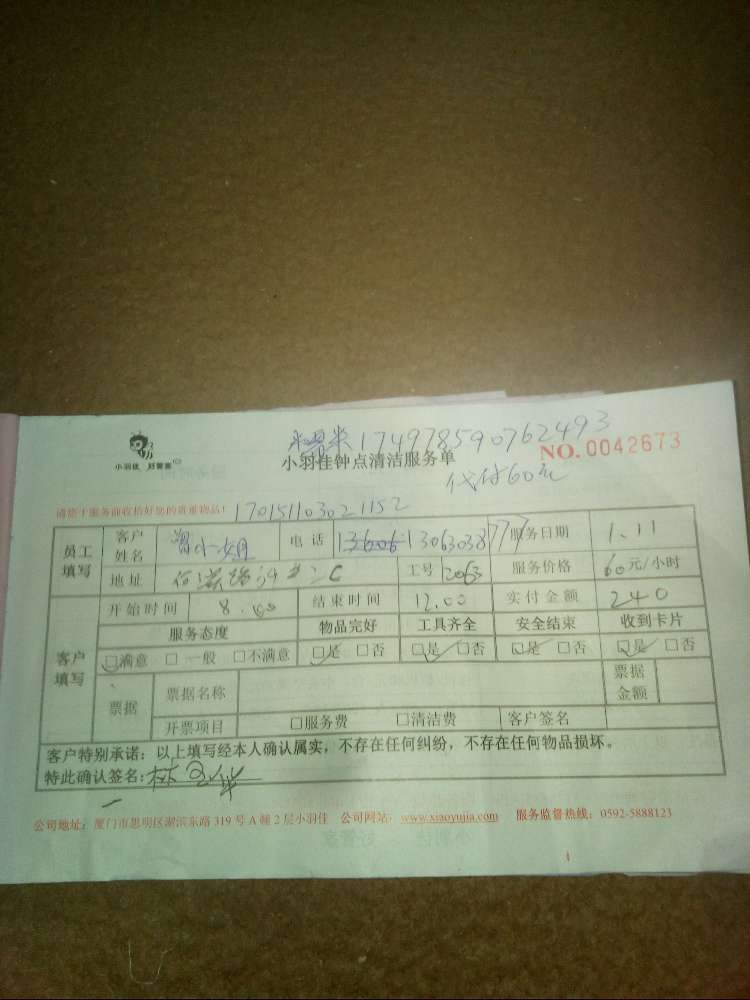 小羽佳 好管家
174978590762493
小羽佳钟点清洁服务单
NO. 0042673
代付60元
请您于服务前收拾好您的贵重物品！
170151103021152
员工填写
客户姓名 曾小姐 电话 13606 13063038777 服务日期 1.11
地址 工号 2063 服务价格 60元/小时
客户填写
开始时间 8.00 结束时间 12.00 实付金额 240
服务态度 物品完好 工具齐全 安全结束 收到卡片
☑满意 □一般 □不满意 ☑是 □否 ☑是 □否 ☑是 □否 ☑是 □否
票据 票据名称 票据金额
开票项目 □服务费 □清洁费 客户签名
客户特别承诺：以上填写经本人确认属实，不存在任何纠纷，不存在任何物品损坏。
特此确认签名：林
公司地址：厦门市思明区湖滨东路 319 号 A 幢 2 层小羽佳 公司网站：www.xiaoyujia.com 服务监督热线：0592-5888123